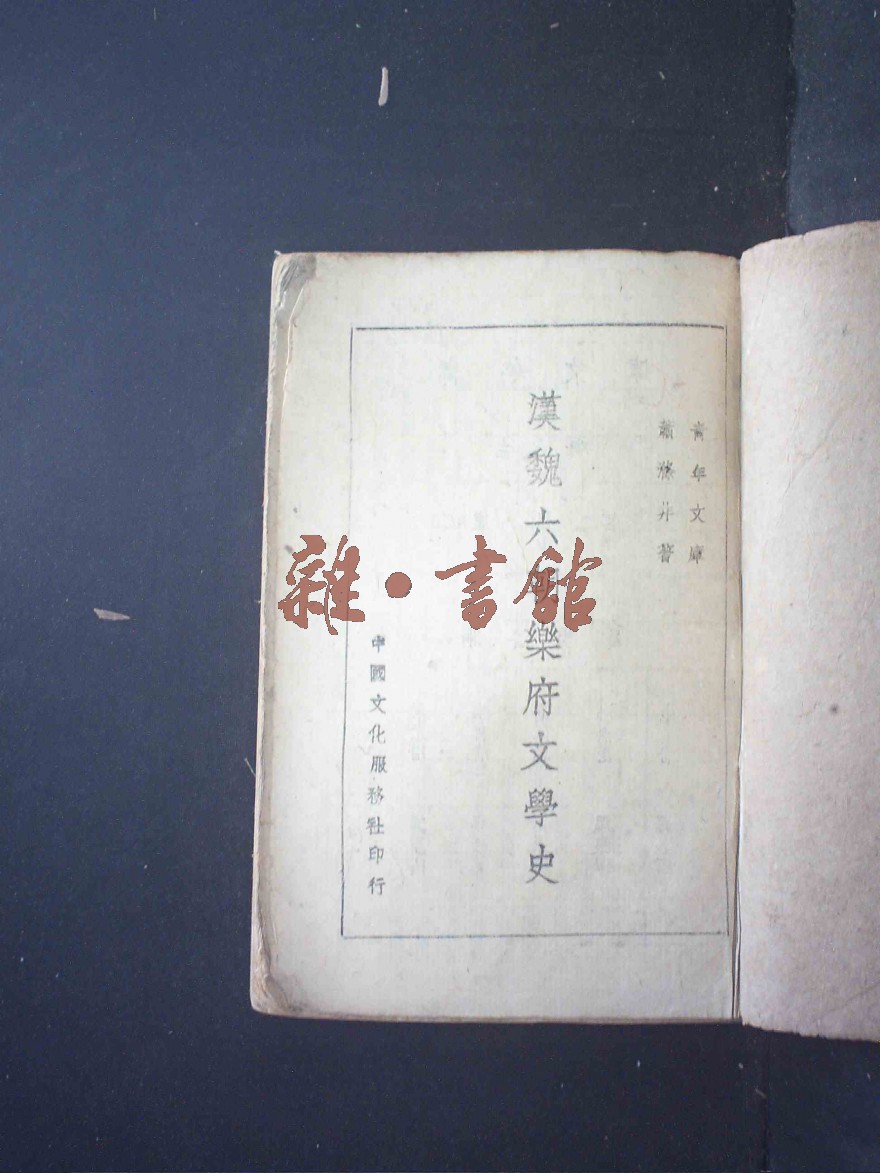 青年文庫
蕭滌非著
漢魏六朝樂府文學史
中國文化服務社印行
雜·書館